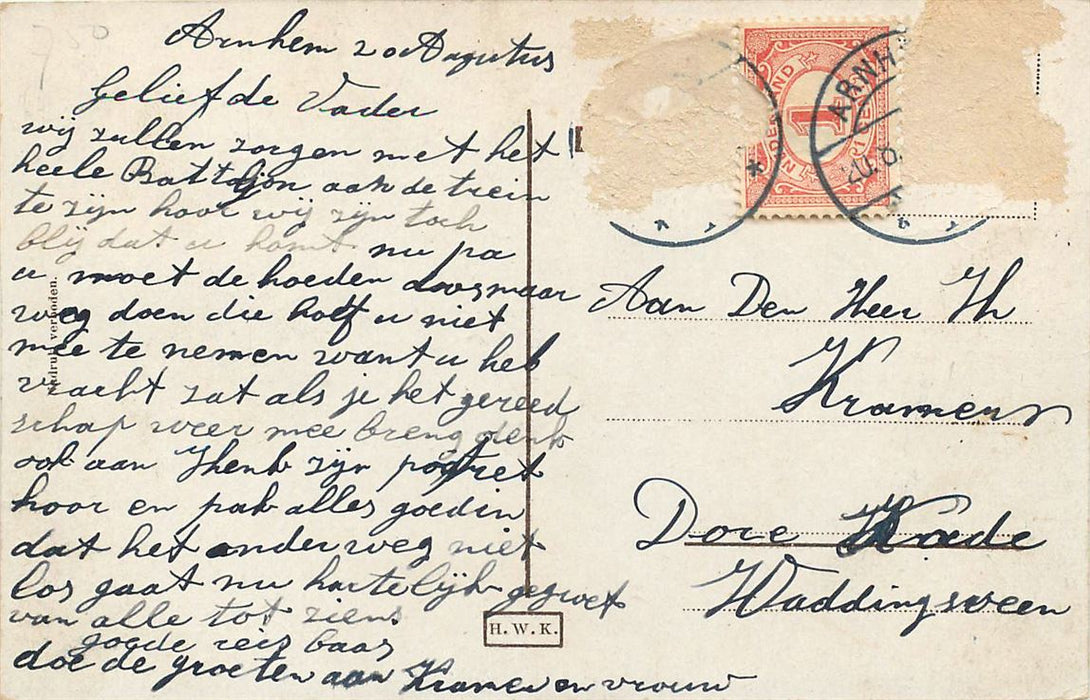 Arnhem 20 Augustus
Geliefde Vader
wij zullen zorgen met het
heele Battaljon aan de trein
te zijn hoor wij zijn toch
blij dat u komt nu pa
u moet de hoeden doos maar
weg doen die hoeft u niet
mee te nemen want u heb
vracht zat als je het gereed
schap weer mee breng denk
ook aan Henk zijn portret
hoor en pak alles goed in
dat het onderweg niet
los gaat nu hartelijk gegroet
van alle tot ziens
goede reis baas
doe de groeten aan Kramer en vrouw
nadruk verboden.
H. W. K.
NEDERLAND
1
ARNH
20. 8.
Aan Den Heer H
Kramer
Dorekade
Waddingsveen